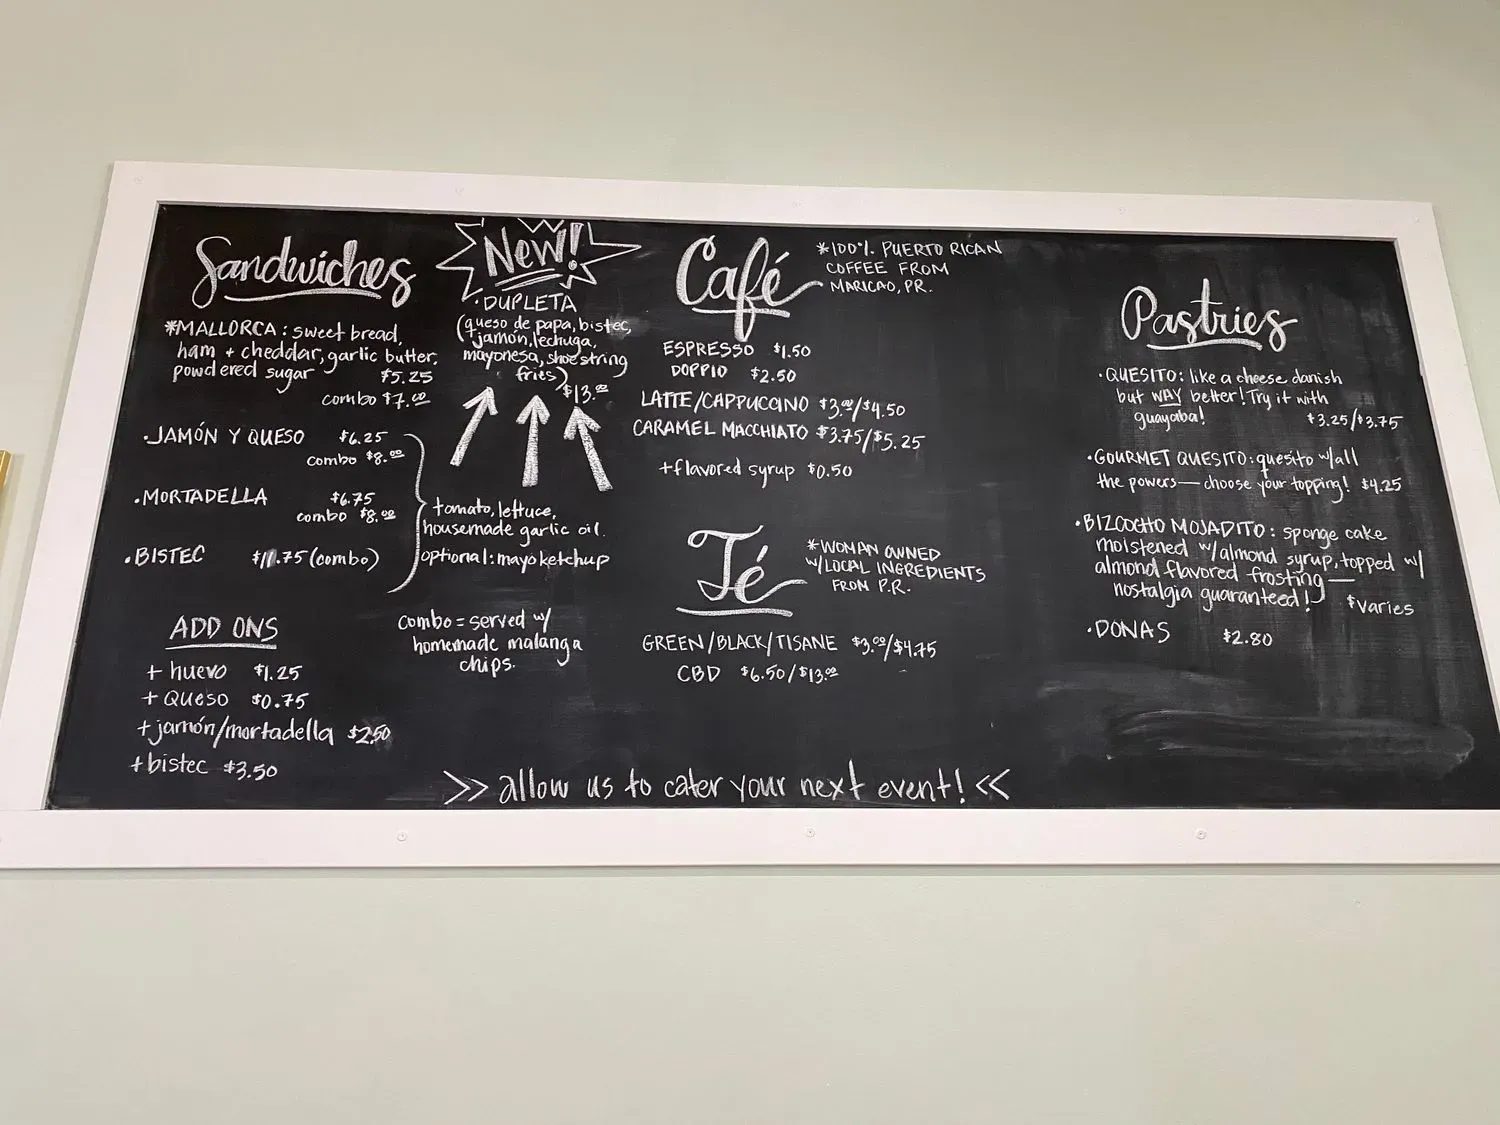 Sandwiches
*MALLORCA: sweet bread,
ham + cheddar, garlic butter,
powdered sugar $5.25
combo $7.00
·JAMÓN Y QUESO $6.25
combo $8.00
·MORTADELLA $6.75
combo $8.00
·BISTEC $11.75 (combo)
tomato, lettuce,
housemade garlic oil.
optional: mayoketchup
ADD ONS
+ huevo $1.25
+ QUESO $0.75
+ jamón/mortadella $2.50
+ bistec $3.50
combo = served w/
homemade malanga
chips.
New!
·DUPLETA
(queso de papa, bistec,
jamón, lechuga,
mayonesa, shoestring
fries)
$13.00
Café
*100% PUERTO RICAN
COFFEE FROM
MARICAO, PR.
ESPRESSO $1.50
DOPPIO $2.50
LATTE/CAPPUCCINO $3.00/$4.50
CARAMEL MACCHIATO $3.75/$5.25
+flavored syrup $0.50
Té
*WOMAN OWNED
W/LOCAL INGREDIENTS
FROM P.R.
GREEN/BLACK/TISANE $3.00/$4.75
CBD $6.50/$13.00
Pastries
·QUESITO: like a cheese danish
but WAY better! Try it with
guayaba! $3.25/$3.75
·GOURMET QUESITO: quesito w/all
the powers—choose your topping! $4.25
·BIZCOCHO MOJADITO: sponge cake
moistened w/almond syrup, topped w/
almond flavored frosting—
nostalgia guaranteed! $varies
·DONAS $2.80
>> allow us to cater your next event! <<